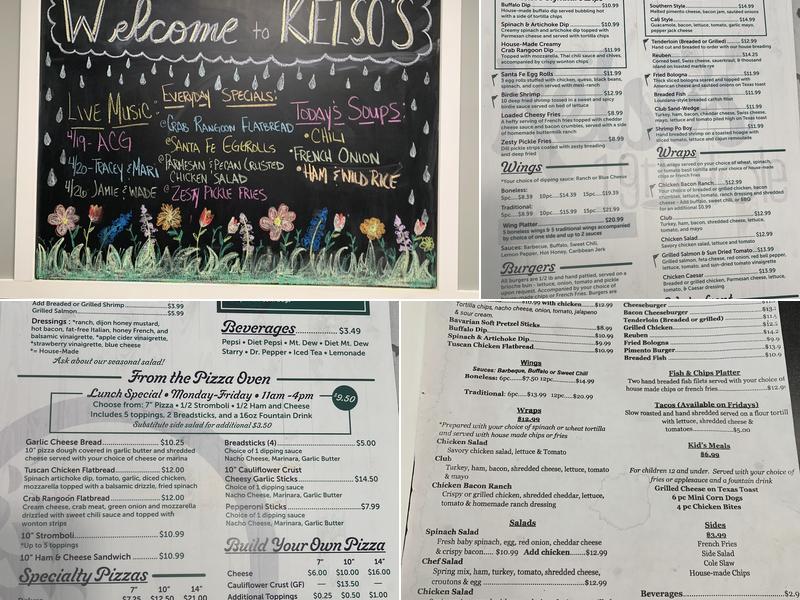 Welcome to KELSO'S
LIVE MUSIC:
4/19- ACG
4/20-TRACEY & MARI
4/26 JAMIE & WADE
EVERYDAY SPECIALS:
CRAB RANGOON FLATBREAD
SANTA FE EGGROLLS
PARMESAN & PECAN CRUSTED
CHICKEN SALAD
ZESTY PICKLE FRIES
TODAY'S SOUPS:
• CHILI
• FRENCH ONION
• HAM & WILD RICE
Buffalo Dip $10.99
House-made buffalo dip served bubbling hot
with a side of tortilla chips
Spinach & Artichoke Dip $10.99
Creamy spinach and artichoke dip topped with
Parmesan cheese and served with tortilla chips
House-Made Creamy
Crab Rangoon Dip $11.99
Topped with mozzarella, Thai chili sauce and chives,
accompanied by crispy wonton chips
Santa Fe Egg Rolls $11.99
3 egg rolls stuffed with chicken, queso, black beans,
spinach, and corn served with mexi-ranch
Birdie Shrimp $12.99
10 deep fried shrimp tossed in a sweet and spicy
birdie sauce served on bed of lettuce
Loaded Cheesy Fries $8.99
A hefty serving of French fries topped with cheddar
cheese sauce and bacon crumbles, served with a side
of homemade buttermilk ranch
Zesty Pickle Fries $8.99
Dill pickle strips coated with zesty breading
and deep fried
Wings
*Your choice of dipping sauce: Ranch or Blue Cheese
Boneless:
5pc...$8.39 10pc...$14.39 15pc...$19.39
Traditional:
5pc...$8.99 10pc...$15.99 15pc...$21.99
Wing Platter $20.99
5 boneless wings & 5 traditional wings accompanied
by choice of one side and up to 2 sauces
Sauces: Barbecue, Buffalo, Sweet Chili,
Lemon Pepper, Hot Honey, Caribbean Jerk
Burgers
All burgers are 1/2 lb and hand pattied, served on a
brioche bun - lettuce, onion, tomato and pickle
upon request. Accompanied by your choice of
house-made chips or French Fries. Burgers are
Southern Style $14.99
Melted pimento cheese, bacon jam, sauteed onions
Cali Style $14.99
Guacamole, bacon, lettuce, tomato, garlic mayo,
pepper jack cheese
Tenderloin (Breaded or Grilled) $12.99
Hand cut and breaded to order with our house breading
Reuben $14.25
Corned beef, Swiss cheese, sauerkraut, & thousand
island on toasted marble rye
Fried Bologna
Thick sliced bologna seared and topped with
American cheese and sautéed onions on Texas toast
Breaded Fish
Louisiana-style breaded catfish filet
Club Sand-Wedge
Turkey, ham, bacon, cheddar cheese, Swiss cheese,
mayo, lettuce and tomato piled high on Texas toast
Shrimp Po Boy
Hand breaded shrimp on a toasted hoagie with
sliced tomato, lettuce and cajun remoulade
Wraps
*All wings served your choice of wheat, spinach,
or tomato best tortilla and your choice of house-made
chips or french fries
Chicken Bacon Ranch $12.99
Your choice of breaded or grilled chicken, bacon
crumbles, shredded cheddar cheese, lettuce,
tomato, ranch dressing and shredded
cheese - Add buffalo, sweet chili, or BBQ
for an additional $0.99
Club $12.99
Turkey, ham, bacon, shredded cheese, lettuce,
tomato, and mayo
Chicken Salad $12.99
Savory chicken salad, lettuce and tomato
Grilled Salmon & Sun Dried Tomato $13.99
Grilled salmon, feta cheese, red onion, red bell pepper,
lettuce, tomato, and sun-dried tomato vinaigrette
Chicken Caesar $13.99
Breaded or grilled chicken, Parmesan cheese, lettuce,
tomato, & Caesar dressing
Add Breaded or Grilled Shrimp $3.99
Grilled Salmon $5.99
Dressings : *ranch, dijon honey mustard,
hot bacon, fat-free Italian, honey French, and
balsamic vinaigrette, *apple cider vinaigrette,
*strawberry vinaigrette, blue cheese
*= House-Made
Ask about our seasonal salad!
Beverages $3.49
Pepsi • Diet Pepsi • Mt. Dew • Diet Mt. Dew
Starry • Dr. Pepper • Iced Tea • Lemonade
From the Pizza Oven
Lunch Special • Monday-Friday • 11am -4pm
$9.50
Choose from: 7" Pizza • 1/2 Stromboli • 1/2 Ham and Cheese
Includes 5 toppings, 2 Breadsticks, and a 16oz Fountain Drink
Substitute side salad for additional $3.50
Garlic Cheese Bread $10.25
10" pizza dough covered in garlic butter and shredded
cheese served with your choice of cheese or marina
Tuscan Chicken Flatbread $12.00
Spinach artichoke dip, tomato, garlic, diced chicken,
mozzarella topped with a balsamic drizzle, fried spinach
Crab Rangoon Flatbread $12.00
Cream cheese, crab meat, green onion and mozzarella
drizzled with sweet chili sauce and topped with
wonton strips
10" Stromboli $10.99
*Up to 5 toppings
10" Ham & Cheese Sandwich $10.99
Specialty Pizzas
7" 10" 14"
$7.25 $12.50 $21.00
Breadsticks (4) $5.00
Choice of 1 dipping sauce
Nacho Cheese, Marinara, Garlic Butter
10" Cauliflower Crust
Cheesy Garlic Sticks $14.50
Choice of 1 dipping sauce
Nacho Cheese, Marinara, Garlic Butter
Pepperoni Sticks $7.99
Choice of 1 dipping sauce
Nacho Cheese, Marinara, Garlic Butter
Build Your Own Pizza
7" 10" 14"
Cheese $6.00 $10.00 $16.00
Cauliflower Crust (GF) — $13.50 —
Additional Toppings $0.25 $0.50 $1.00
with chicken $12.99
Tortilla chips, nacho cheese, onion, tomato, jalapeno
& sour cream.
Bavarian Soft Pretzel Sticks $8.99
Buffalo Dip $10.99
Spinach & Artichoke Dip $10.99
Tuscan Chicken Flatbread $9.99
Wings
Sauces: Barbeque, Buffalo or Sweet Chili
Boneless: 6pc.....$7.50 12pc.....$14.99
Traditional: 6pc.....$13.99 12pc.....$20.99
Wraps
$12.99
*Prepared with your choice of spinach or wheat tortilla
and served with house made chips or fries
Chicken Salad
Savory chicken salad, lettuce & Tomato
Club
Turkey, ham, bacon, shredded cheese, lettuce, tomato
& mayo
Chicken Bacon Ranch
Crispy or grilled chicken, shredded cheddar, lettuce,
tomato & homemade ranch dressing
Salads
Spinach Salad
Fresh baby spinach, egg, red onion, cheddar cheese
& crispy bacon..... $10.99 Add chicken.....$12.99
Chef Salad
Spring mix, ham, turkey, tomato, shredded cheese,
croutons & egg $12.99
Chicken Salad
Cheeseburger
Bacon Cheeseburger
Tenderloin (Breaded or grilled)
Grilled Chicken
Reuben
Fried Bologna
Pimento Burger
Breaded Fish
Fish & Chips Platter
Two hand breaded fish filets served with your choice of
house made chips or french fries
Tacos (Available on Fridays)
Slow roasted and hand shredded served on a flour tortilla
with lettuce, shredded cheese &
tomatoes $5.00
Kid's Meals
$6.99
For children 12 and under. Served with your choice of
fries or applesauce and a fountain drink
Grilled Cheese on Texas Toast
6 pc Mini Corn Dogs
4 pc Chicken Bites
Sides
$3.99
French Fries
Side Salad
Cole Slaw
House-made Chips
Beverages